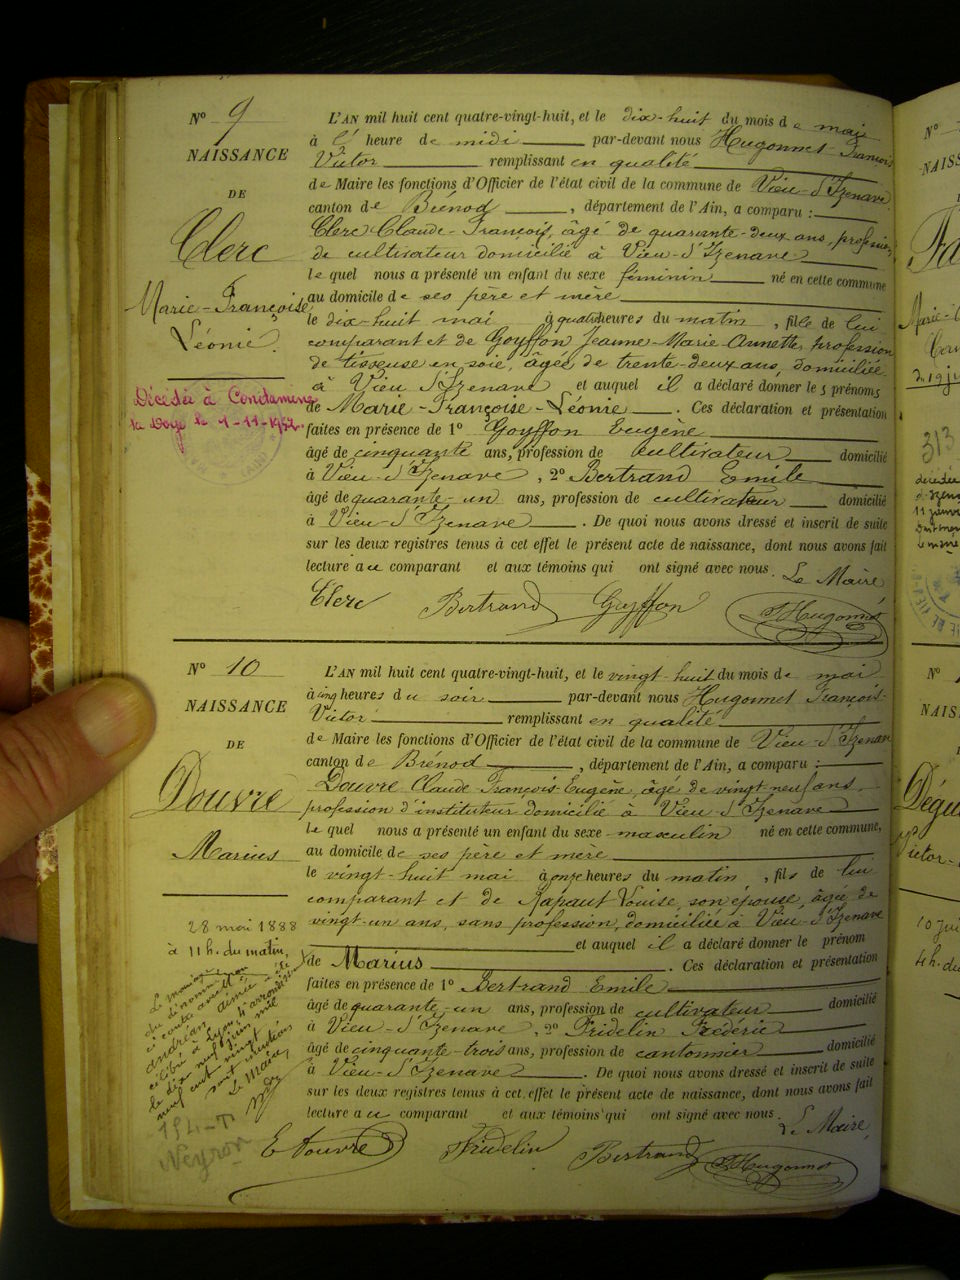 N° 9
NAISSANCE
DE
Clerc
Marie-Françoise
Léonie.
Décédée à Condamine
la Doye le 1-11-1952.
L'AN mil huit cent quatre-vingt-huit, et le dix-huit du mois de mai
à l' heure de midi par-devant nous Hugonnet François
Victor remplissant en qualité
de Maire les fonctions d'Officier de l'état civil de la commune de Vieu-d'Izenave
canton de Brénod , département de l'Ain, a comparu :
Clerc Claude-François, âgé de quarante-deux ans, profession
de cultivateur domicilié à Vieu-d'Izenave
lequel nous a présenté un enfant du sexe féminin né en cette commune
au domicile de ses père et mère
le dix-huit mai à quatre heures du matin , fille de lui
comparant et de Goyffon Jeanne-Marie-Annette, profession
de tisseuse en soie, âgée de trente-deux ans, domiciliée
à Vieu d'Izenave et auquel il a déclaré donner les prénoms
de Marie-Françoise-Léonie . Ces déclaration et présentation
faites en présence de 1° Goyffon Eugène
âgé de cinquante ans, profession de cultivateur domicilié
à Vieu-d'Izenave , 2° Bertrand Emile
âgé de quarante-un ans, profession de cultivateur domicilié
à Vieu-d'Izenave . De quoi nous avons dressé et inscrit de suite
sur les deux registres tenus à cet effet le présent acte de naissance, dont nous avons fait
lecture au comparant et aux témoins qui ont signé avec nous. Le Maire
Clerc Bertrand Goyffon Hugonnet
N° 10
NAISSANCE
DE
Douvre
Marius
28 mai 1888
à 11 h. du matin,
Le mariage
du dénommé
ci contre avec
aimée a été
célébré à Lyon 4e arrondissemt
le dix neuf juin mil
neuf cent vingt
Le Maire,
194-T
Neyron
L'AN mil huit cent quatre-vingt-huit, et le vingt-huit du mois de mai
à cinq heures du soir par-devant nous Hugonnet François-
Victor remplissant en qualité
de Maire les fonctions d'Officier de l'état civil de la commune de Vieu-d'Izenave
canton de Brénod , département de l'Ain, a comparu :
Douvre Claude François-Eugène, âgé de vingt neuf ans,
profession d'instituteur domicilié à Vieu-d'Izenave
lequel nous a présenté un enfant du sexe masculin né en cette commune,
au domicile de ses père et mère
le vingt-huit mai à onze heures du matin , fils de lui
comparant et de Rapaut Louise, son épouse, âgée de
vingt-un ans, sans profession, domiciliée à Vieu-d'Izenave
et auquel il a déclaré donner le prénom
de Marius . Ces déclaration et présentation
faites en présence de 1° Bertrand Emile
âgé de quarante-un ans, profession de cultivateur domicilié
à Vieu-d'Izenave , 2° Fridelin Frédéric
âgé de cinquante-trois ans, profession de cantonnier domicilié
à Vieu-d'Izenave . De quoi nous avons dressé et inscrit de suite
sur les deux registres tenus à cet effet le présent acte de naissance, dont nous avons fait
lecture au comparant et aux témoins qui ont signé avec nous. Le Maire,
E Douvre Fridelin Bertrand Hugonnet